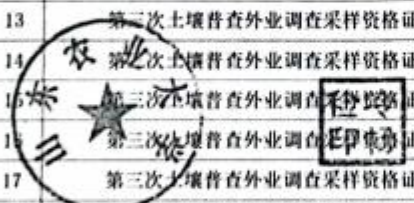 13 第三次土壤普查外业调查采样资格证
14 第三次土壤普查外业调查采样资格证
15 第三次土壤普查外业调查采样资格证
16 第三次土壤普查外业调查采样资格证
17 第三次土壤普查外业调查采样资格证
山东农业大